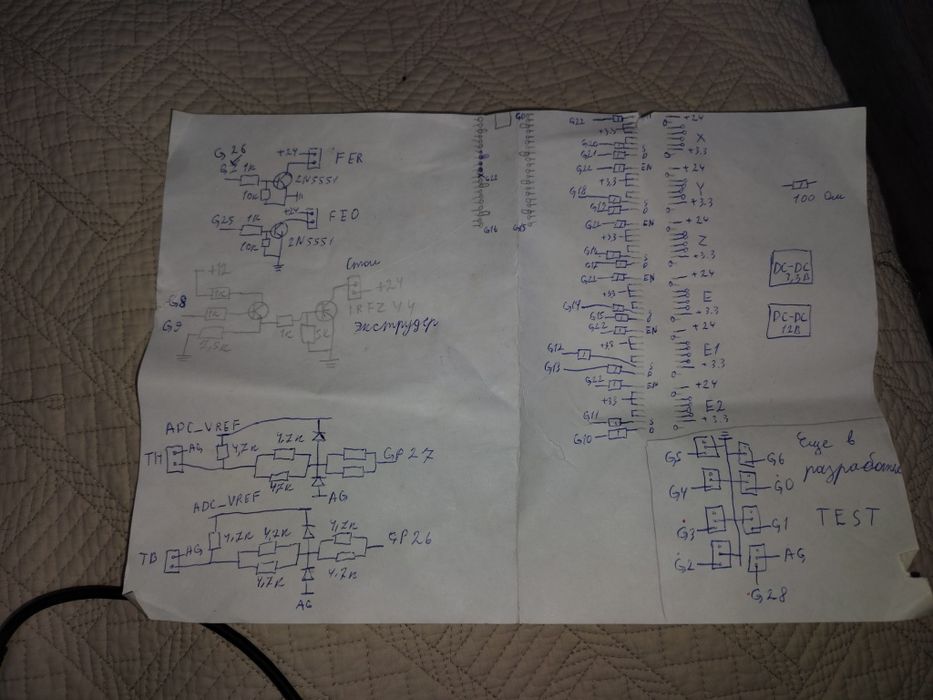 G26
+24
FER
1K
10K
2N5551
G25
1K
+24
FEO
10K
2N5551
+12
Стол
1K
+24
G8
1K
IRFZ44
G9
1K
5K
экструдер
2,5K
ADC_VREF
TH
AG
4,7K
4,7K
4,7K
GP27
AG
ADC_VREF
TB
AG
4,7K
4,7K
4,7K
4,7K
4,7K
GP26
AG
G0
G22
G16
G15
G22
+24
+3.3
X
G20
G21
S
D
+3.3
G22
EN
+24
+3.3
Y
G18
G19
S
D
+3.3
G22
EN
+24
+3.3
Z
S
D
+3.3
EN
+24
+3.3
E
G14
G15
+3.3
G22
EN
+24
+3.3
E1
G12
G13
+3.3
G22
EN
+24
+3.3
E2
G11
G10
S
D
+3.3
100 Ом
DC-DC
3,3В
DC-DC
12В
Еще в
разработке
TEST
G5
G6
G4
G0
G3
G1
G2
AG
G28